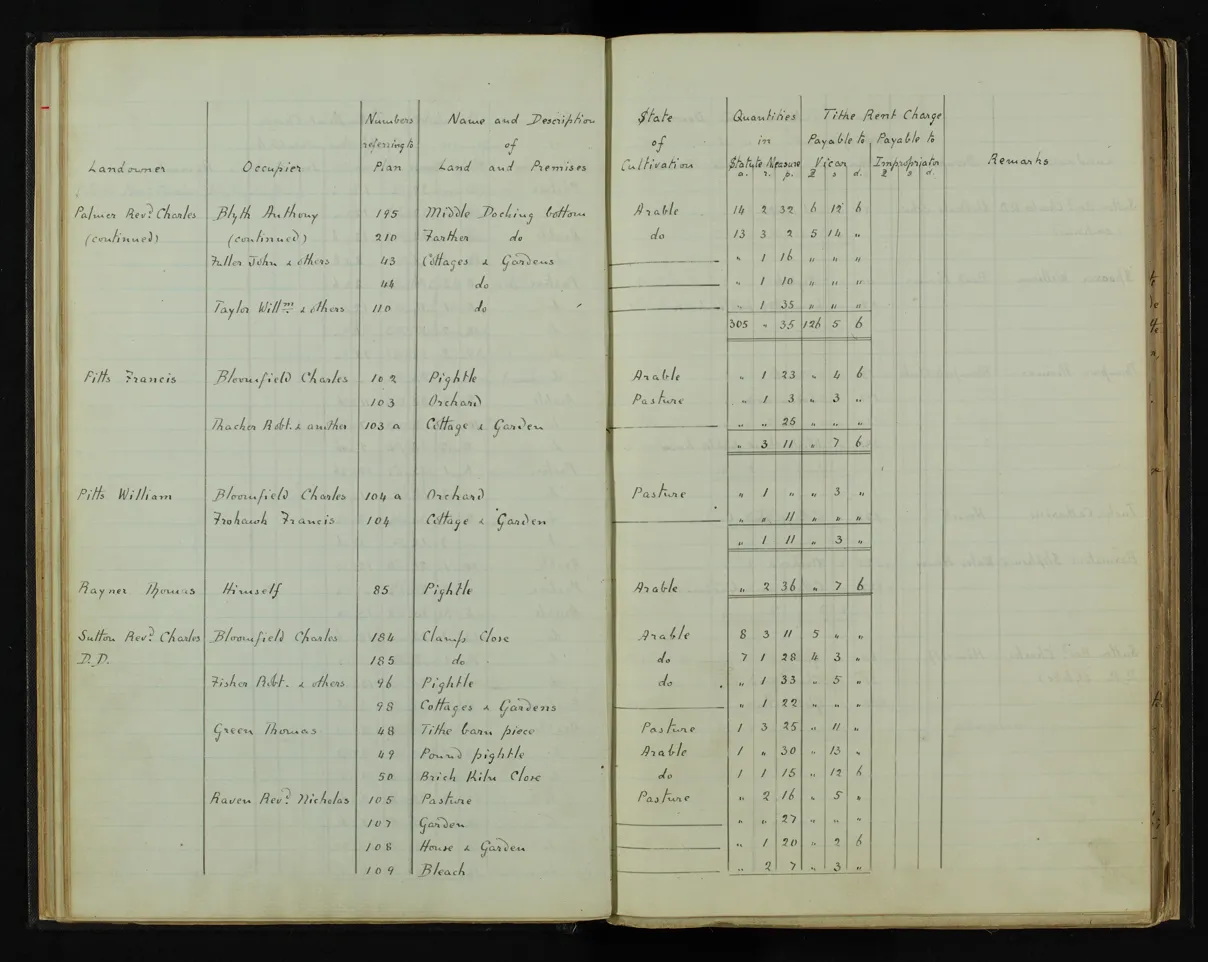 Numbers Name and Description State Quantities Tithe Rent Charge
referring to of of in Payable to Payable to
Landowner Occupier Plan Land and Premises Cultivation Statute Measure Vicar Impropriator Remarks
a. r. p. £ s d. £ s d.
Palmer Revd. Charles Blyth Anthony 195 Middle Docking bottom Arable 14 2 32 6 12 6
(continued) (continued) 210 Farther do do 13 3 2 5 14 "
Fuller John & others 43 Cottages & Gardens " 1 16 " " "
44 do " 1 10 " " "
Taylor Willm & others 110 do " 1 35 " " "
305 " 35 126 5 6
Pitts Francis Bloomfield Charles 102 Pightle Arable " 1 23 " 4 6
103 Orchard Pasture " 1 3 " 3 "
Thacker Robt. & another 103 a Cottage & Garden " " 25 " " "
" 3 11 " 7 6
Pitts William Bloomfield Charles 104 a Orchard Pasture " 1 " " 3 "
Frohawk Francis 104 Cottage & Garden " " 11 " " "
" 1 11 " 3 "
Rayner Thomas Himself 85 Pightle Arable " 2 36 " 7 6
Sutton Revd. Charles Bloomfield Charles 184 Clamps Close Arable 8 3 11 5 " "
D.D. 185 do do 7 1 28 4 3 "
Fisher Robt. & others 96 Pightle do " 1 33 " 5 "
98 Cottages & Gardens " 1 22 " " "
Green Thomas 48 Tithe barn piece Pasture 1 3 25 " 11 "
49 Pound pightle Arable 1 " 30 " 13 "
50 Brick Kiln Close do 1 1 15 " 12 6
Raven Revd. Nicholas 105 Pasture Pasture " 2 16 " 5 "
107 Garden " " 27 " " "
108 House & Garden " 1 20 " 2 6
109 Bleach " 2 7 " 3 "